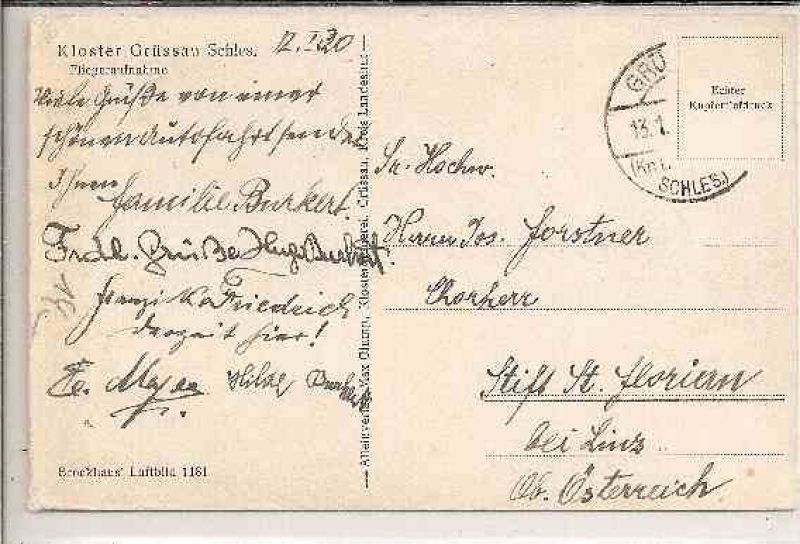 Kloster Grüssau Schles.
Fliegeraufnahme
Viele Grüße von einer
schönen Autofahrt senden
Ihnen
Familie Burkert.
Frdl. Grüße Hugo Burkert
Friedrich
derzeit hier!
Hilde Burkert
Brockhaus' Luftbild 1181
Alleinverlag Max Glumm, Klostergärtnerei, Grüssau, Kreis Landeshut
GRÜ
13.1.
SCHLES.)
Echter
Kupfertiefdruck
Sr. Hochw.
Herrn Jos. Forstner
Chorherr
Stift St. Florian
bei Linz
Ob. Österreich